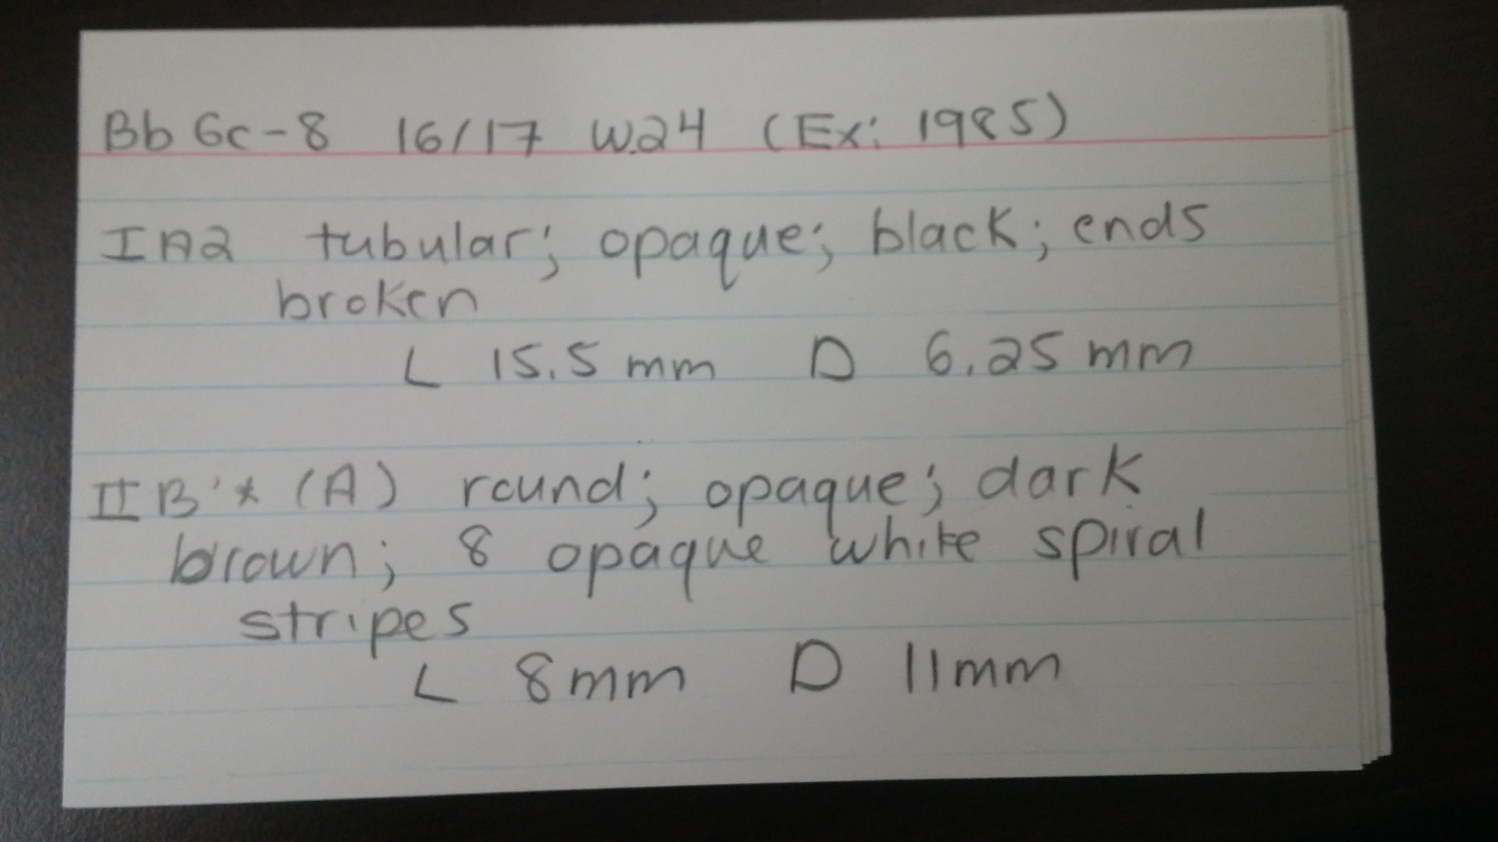 Bb Gc-8 16/17 W.24 (Ex: 1985)
IA2 tubular; opaque; black; ends
broken
L 15.5mm D 6.25mm
IIB'* (A) round; opaque; dark
brown; 8 opaque white spiral
stripes
L 8mm D 11mm